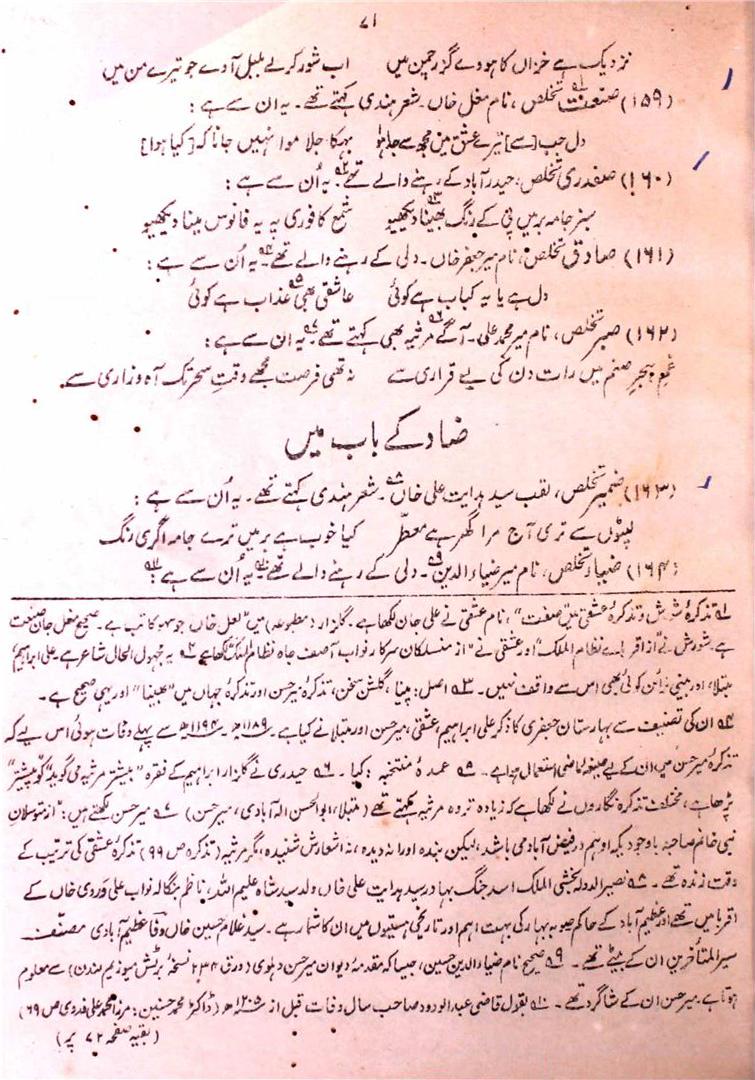 ۷۱
نزدیک ہے خزاں کا ہووے گزر چمن میں اب شور کر لے بلبل آوے جو تیرے من میں
(۱۵۹) صنعت تخلص، نام مغل خاں۔ شعر ہندی کہتے تھے۔ یہ ان سے ہے :
دل جب [سے] تیرے عشق میں مجھ سے جدا ہوا بہکا جلا موا نہیں جانا کہ [کیا ہوا]
(۱۶۰) صفدری تخلص، حیدرآباد کے رہنے والے تھے۔ یہ اُن سے ہے :
سبز جامہ بر میں پی کے رنگ بھینا دیکھیو شمع کافوری پہ یہ فانوس مینا دیکھیو
(۱۶۱) صادق تخلص، نام میر جعفر خاں۔ دلی کے رہنے والے تھے۔ یہ اُن سے ہے :
دل ہے یا یہ کباب ہے کوئی عاشقی بھی عذاب ہے کوئی
(۱۶۲) صبر تخلص، نام میر محمد علی۔ آگے مرثیہ بھی کہتے تھے۔ یہ ان سے ہے :
غمِ ہجرِ صنم میں رات دن کی بے قراری سے نہ تھی فرصت مجھے وقتِ سحر تک آہ و زاری سے
ضاد کے باب میں
(۱۶۳) ضمیر تخلص، لقب سید ہدایت علی خاں۔ شعر ہندی کہتے تھے۔ یہ اُن سے ہے :
لپٹوں سے تری آج مرا گھر ہے معطّر کیا خوب ہے بر میں ترے جامہ اگری رنگ
(۱۶۴) ضیاء تخلص، نام میر ضیاء الدین۔ دلی کے رہنے والے تھے۔ یہ اُن سے ہے :
۱ تذکرۂ شورش و تذکرۂ عشقی میں "صفت"، نام عشقی نے علی جان لکھا ہے۔ گلزار (مطبوعہ) میں "لعل خاں جو سہو کاتب ہے۔ صحیح مغل جان صنعت
ہے شورش نے "از اقربائے نظام الملک" اور عشقی نے "از منسلکان سرکار نواب آصف جاہ نظام الملک" لکھا ہے ۲ یہ مجہول الحال شاعر ہے علی ابراہیم
مبتلا، اور کوئی بھی اس سے واقف نہیں۔ ۳ اصل: پینا، گلشن سخن، تذکرۂ میر حسن اور تذکرۂ جہاں میں "بھینا" اور یہی صحیح ہے۔
۴ ان کی تصنیف سے بہارستان جعفری کا ذکر علی ابراہیم، عشقی، میر حسن اور مبتلا نے کیا ہے۔ ۱۱۸۹ھ ۔ ۱۱۹۴ھ سے پہلے وفات ہوئی اس لیے کہ
تذکرۂ میر حسن میں ان کے لیے صیغۂ ماضی استعمال ہوا ہے۔ ۵ عمدۂ منتخبہ : کیا۔ ۶ حیدری نے گلزار ابراہیم کے فقرہ "بیشتر مرثیہ می گوید" کو "پیشتر"
پڑھا ہے، مختلف تذکرہ نگاروں نے لکھا ہے کہ زیادہ تر وہ مرثیہ کہتے تھے (مبتلا، ابوالحسن الہ آبادی، میر حسن) ۷ میر حسن لکھتے ہیں : "از متوسلان
نبی خانم صاحبہ باوجودیکہ او ہم در فیض آباد می باشد، لیکن بندہ او را ندیدہ، نہ اشعارش شنیدہ، مگر مرثیہ (تذکرہ ص ۹۹) تذکرۂ عشقی کی ترتیب کے
وقت زندہ تھے۔ ۸ نصیر الدولہ بخشی الملک اسد جنگ بہادر سید ہدایت علی خاں ولد سید شاہ علیم اللہ، ناظم بنگالہ نواب علی وردی خاں کے
اقربا میں تھے اور عظیم آباد کے حاکم صوبہ بہار کی بہت اہم اور تاریخی ہستیوں میں ان کا شمار ہے۔ سید غلام حسین خاں وفا عظیم آبادی مصنف
سیر المتأخرین ان کے بیٹے تھے۔ ۹ صحیح نام ضیاء الدین حسین، جیسا کہ مقدمہ دیوان میر حسن دہلوی (ورق ۲۳۴ نسخۂ برٹش میوزیم لندن) سے معلوم
ہوتا ہے، میر حسن ان کے شاگرد تھے۔ ۱۰ بقول قاضی عبدالودود صاحب سال وفات قبل از ۱۲۰۵ھ (ڈاکٹر محمد حسنین : مرزا محمد علی فدوی ص ۶۹)
(بقیہ صفحہ ۷۲ پر)